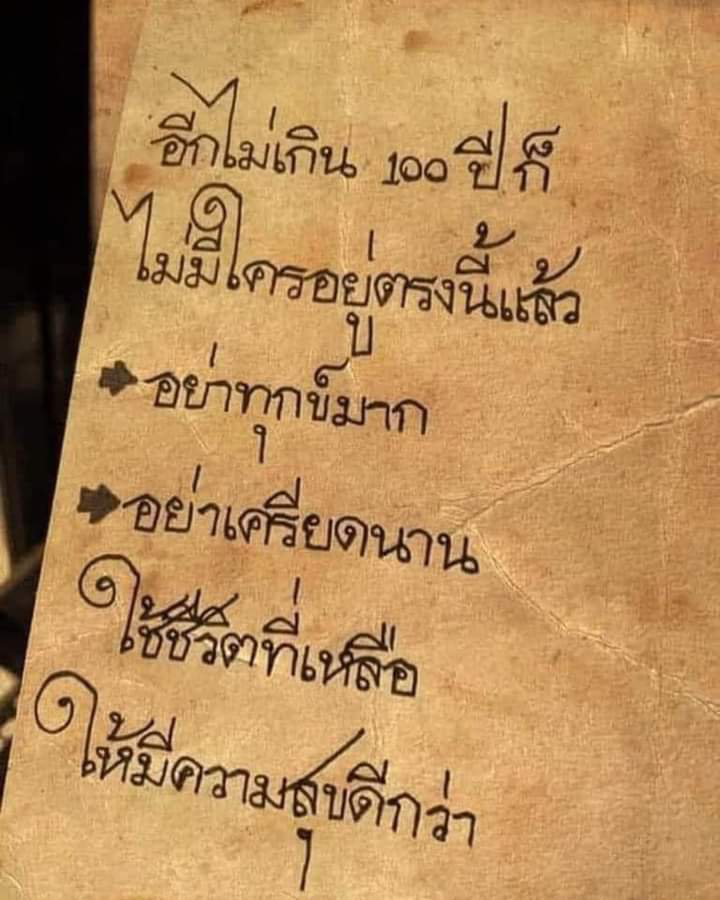 อีกไม่เกิน 100 ปี ก็
ไม่มีใครอยู่ตรงนี้แล้ว
➡อย่าทุกข์มาก
➡อย่าเครียดนาน
ใช้ชีวิตที่เหลือ
ให้มีความสุขดีกว่า